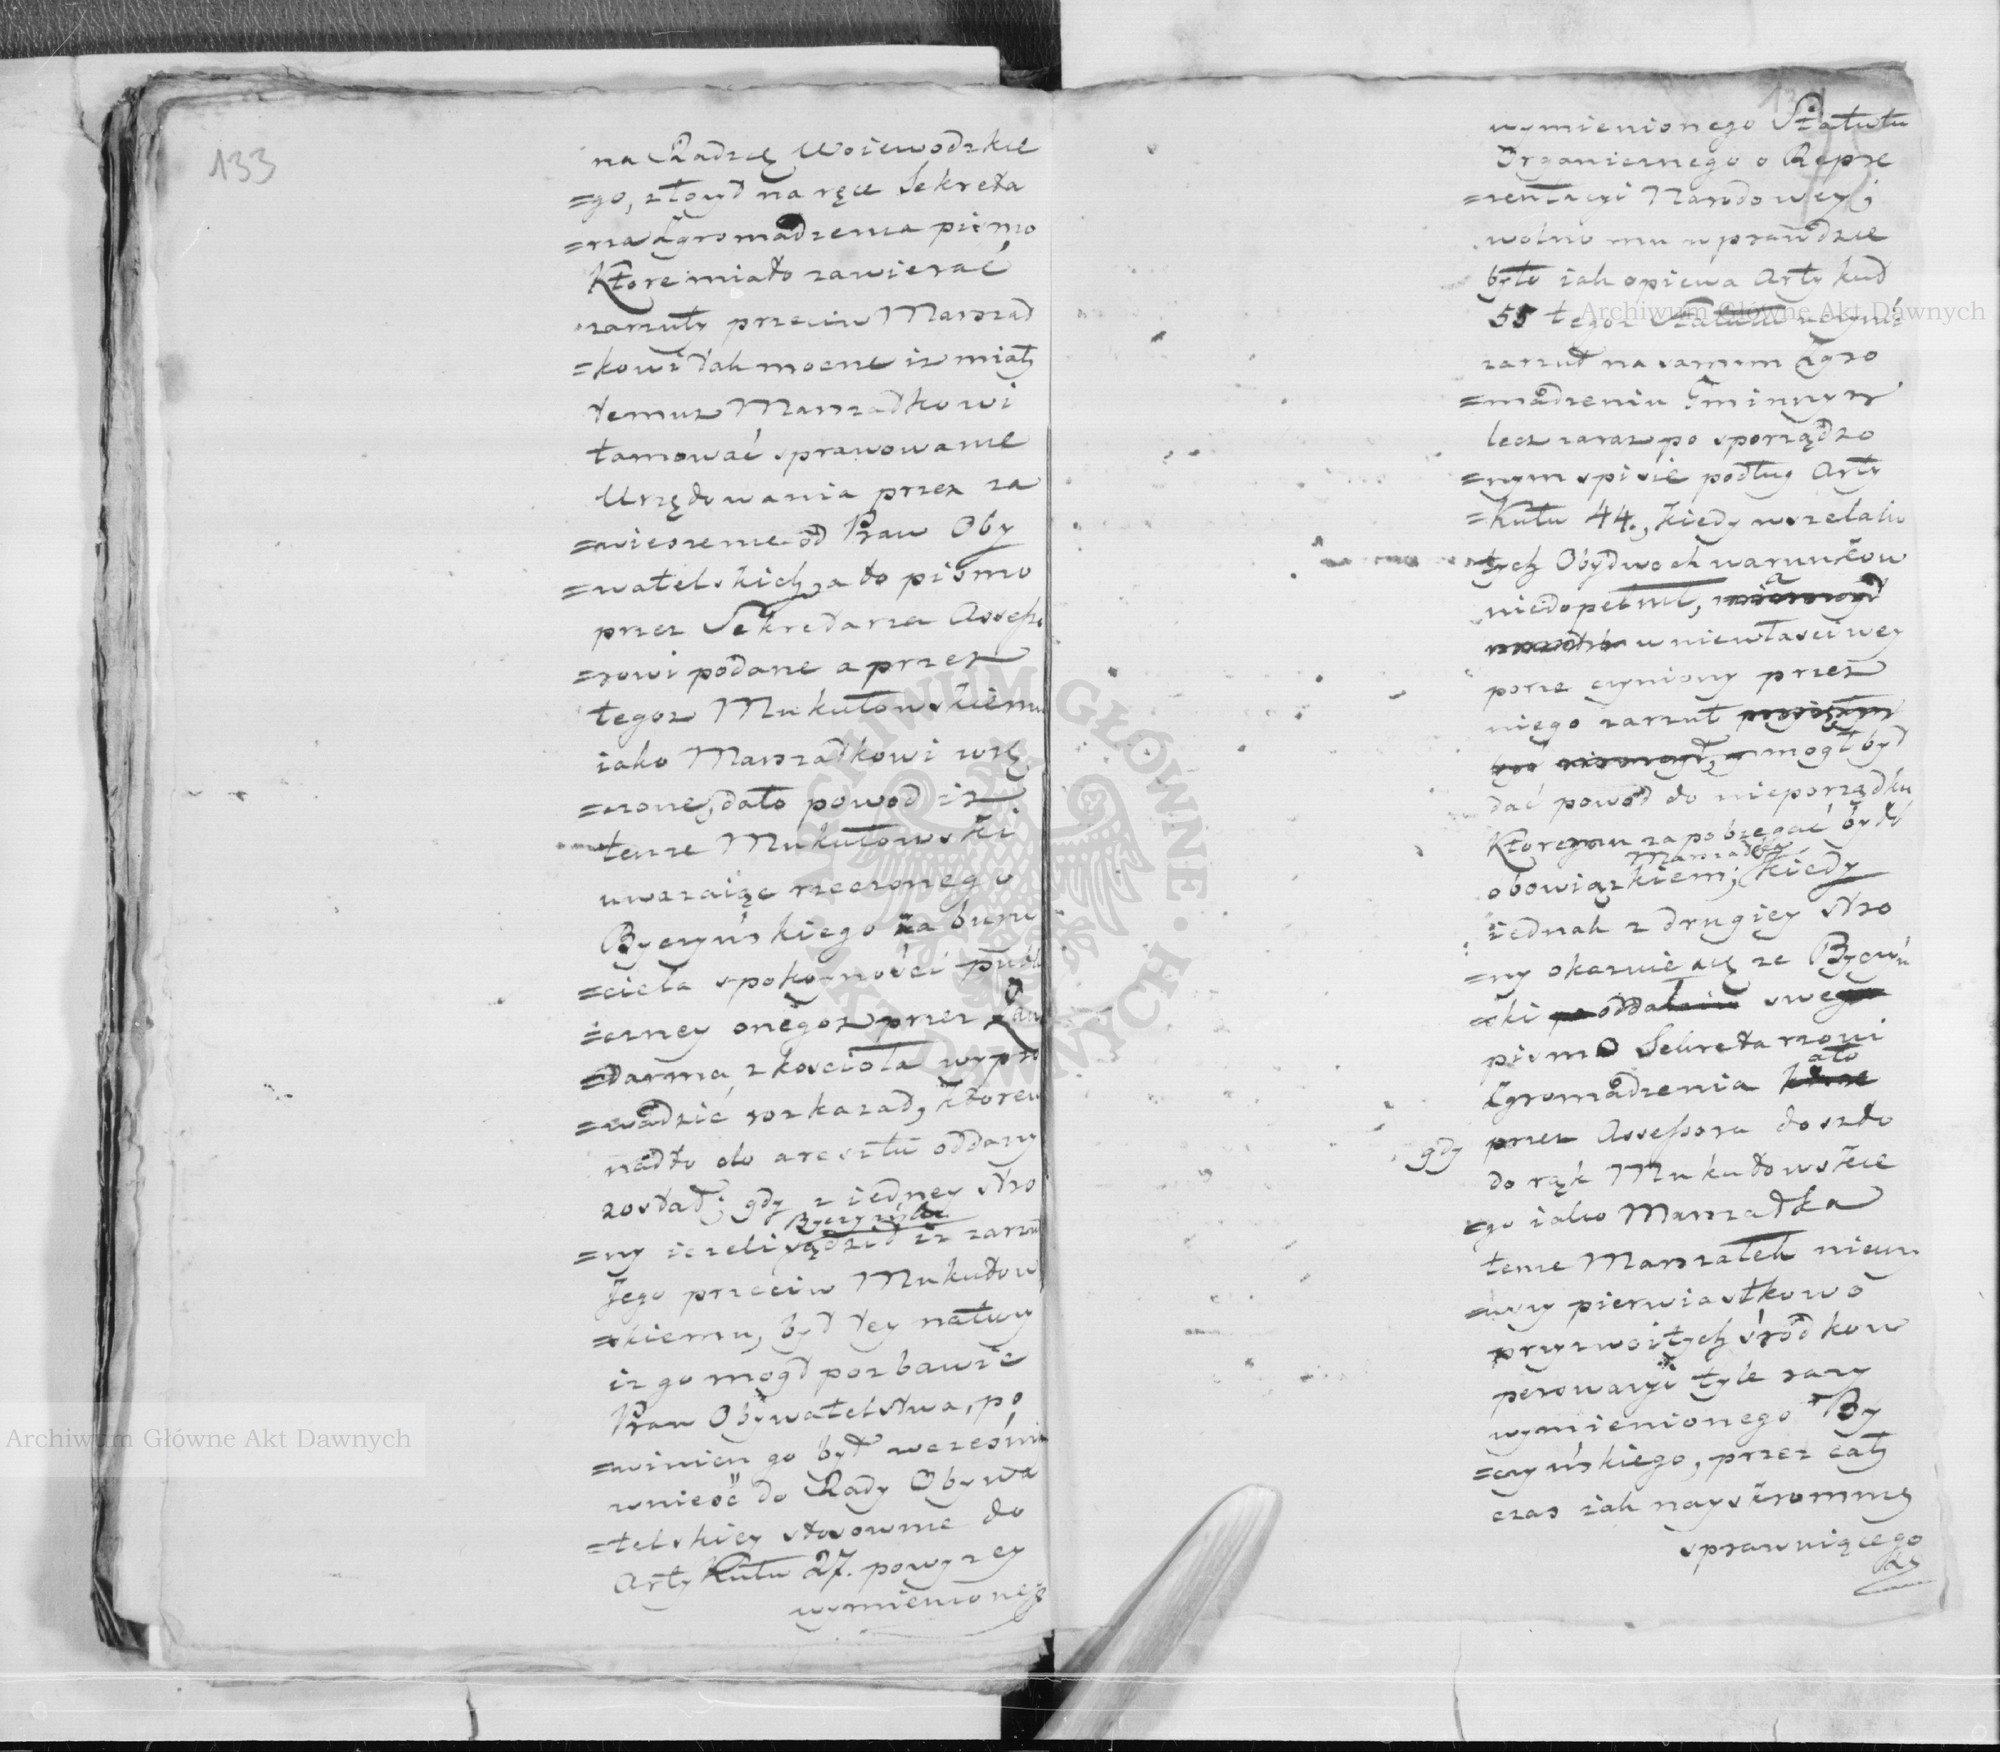 133
na Radzcę Woiewodzkie
=go, złożył na ręce Sekreta
=rza Zgromadzenia pismo
Które miało zawierać
zarzuty przeciw Marszał
=kowi tak mocne iż miały
temuż Marszałkowi
tamować sprawowanie
Urzędowania przez za
=wieszenie od Praw Oby
=watelskich, a to pismo
przez Sekretarza Assesso
=rowi podane a przez
tegoż Mukułowskiemu
iako Marszałkowi wrę
=czone, dało powód iż
tenże Mukułowski
uważaiąc rzeczonego
Byczyńskiego za burzy
=ciela spokoyności publi
=czney onegoż przez Żan
=darma z kościoła wypro
=wadzić rozkazał, który
nadto do aresztu oddany
został; gdy z iedney stro
=ny ieżeli Byczyński sądził iż zarzut
Jego przeciw Mukułow
=skiemu, był tey natury
iż go mógł pozbawić
Praw Obywatelstwa, po
=winien go był wcześnie
wnieść do Rady Obywa
=telskiey stosownie do
Artykułu 27. powyżey
wymienionego
wymienionego Statutu
Organicznego o Repre
=zentacyi Narodowey;
wolno mu wprawdzie
było iak opiewa Artykuł
55 tegoż Statutu uczynić
zarzut na samym Zgro
=madzeniu Gminnym
lecz zaraz po sporządzo
=nym spisie podług Arty
=kułu 44., kiedy wszelako
tych Obydwoch warunków
niedopełnił, a
w niewłaściwey
porze czyniony przez
niego zarzut
mógł był
dać powód do nieporządku
Któremu zapobiegać było
Marszałka
obowiązkiem; kiedy
iednak z drugiey stro
=ny okazuie się że Byczyń
=ski oddał swe
pismo Sekretarzowi
Zgromadzenia a to
gdy przez Assessora doszło
do rąk Mukułowskie
=go iako Marszałka
tenże Marszałek nieuży
=wszy pierwiastkowo
przyzwoitych środków
perswazyi tyle razy
wymienionego By
=czyńskiego, przez cały
czas iak nayskromniey
sprawuiącego
się
Archiwum Główne Akt Dawnych
Archiwum Główne Akt Dawnych
ARCHIWUM GŁÓWNE AKT DAWNYCH